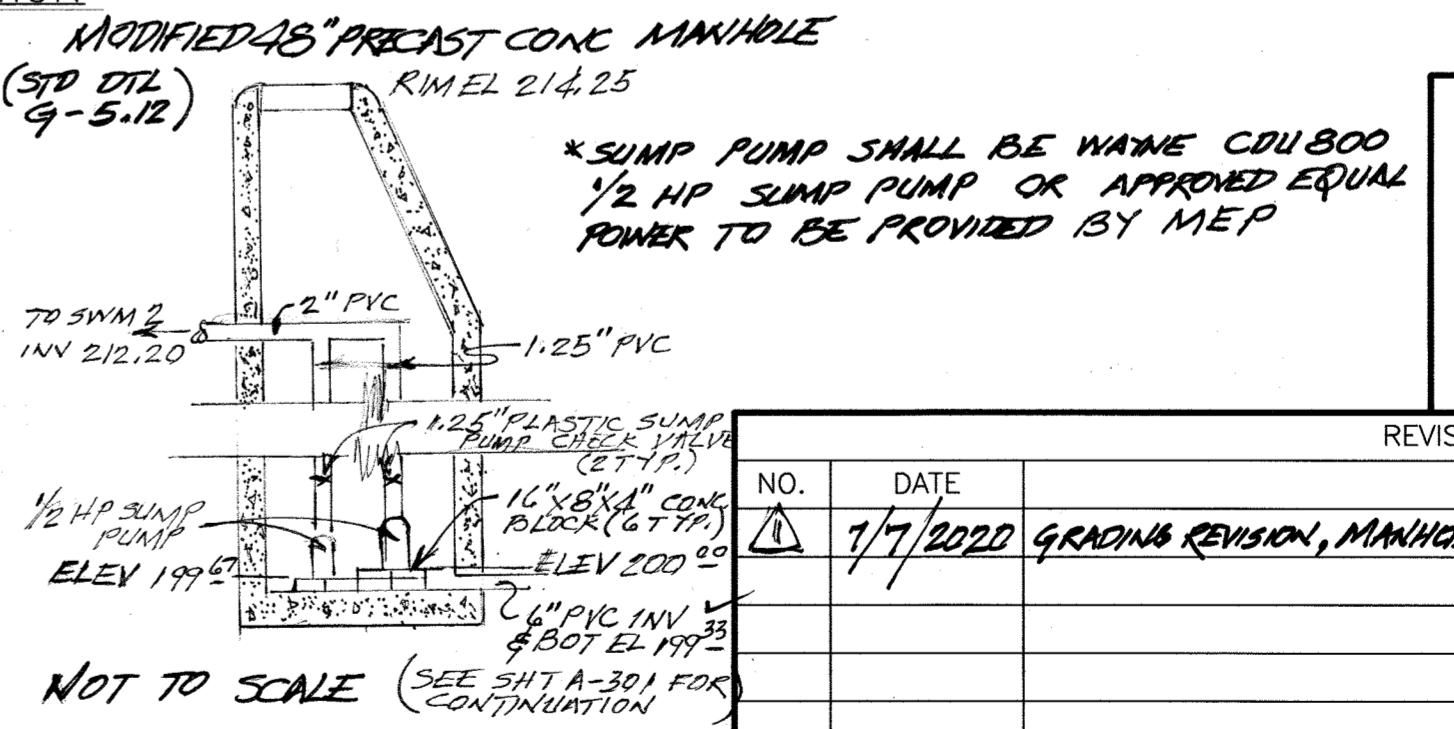 MODIFIED 48" PRECAST CONC MANHOLE
(STD DTL
G-5.12)
RIM EL 214.25
*SUMP PUMP SHALL BE WAYNE CDU800
1/2 HP SUMP PUMP OR APPROVED EQUAL
POWER TO BE PROVIDED BY MEP
TO SWM 2
INV 212.20
2" PVC
1.25" PVC
1.25" PLASTIC SUMP
PUMP CHECK VALVE
(2 TYP.)
1/2 HP SUMP
PUMP
16"X8"X4" CONC
BLOCK (6 TYP.)
ELEV 199 67
ELEV 200 00
6" PVC INV
& BOT EL 199 33
NOT TO SCALE
(SEE SHT A-301 FOR
CONTINUATION)
REVIS
NO.
DATE
1
7/7/2020
GRADING REVISION, MANHO